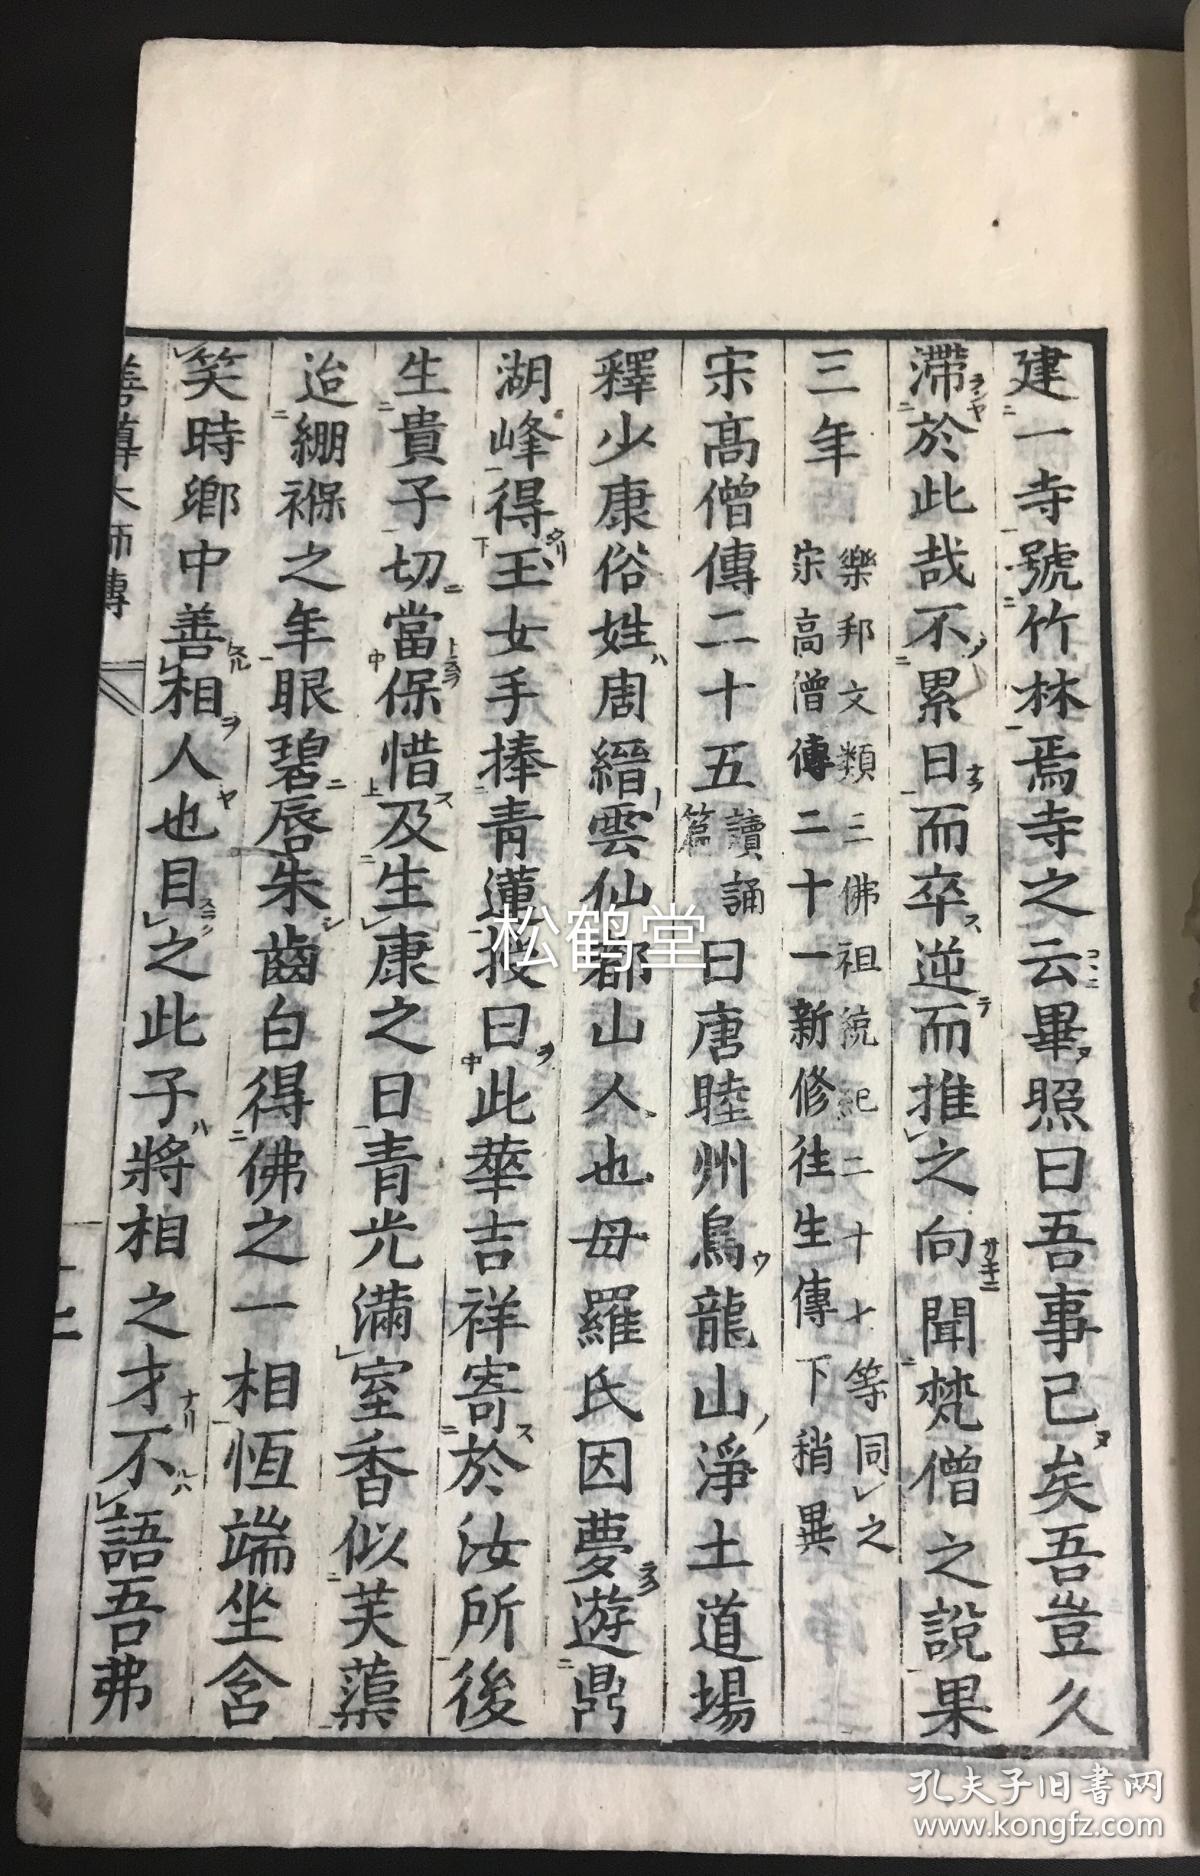 建一寺號竹林焉寺之云畢照曰吾事已矣吾豈久
滯於此哉不累日而卒逆而推之向聞梵僧之說果
三年 樂邦文類三佛祖統紀二十七等同之
宋高僧傳二十一新修往生傳下稍異
宋高僧傳二十五 讀誦
篇
曰唐睦州烏龍山淨土道場
釋少康俗姓周縉雲仙都山人也母羅氏因夢遊鼎
湖峰得玉女手捧青蓮授曰此華吉祥寄於汝所後
生貴子切當保惜及生康之日青光滿室香似芙蕖
迨繃褓之年眼碧唇朱齒白得佛之一相恆端坐含
笑時鄉中善相人也目之此子將相之才不語吾弗
善導大師傳
松鹤堂
孔夫子旧书网
www.kongfz.com